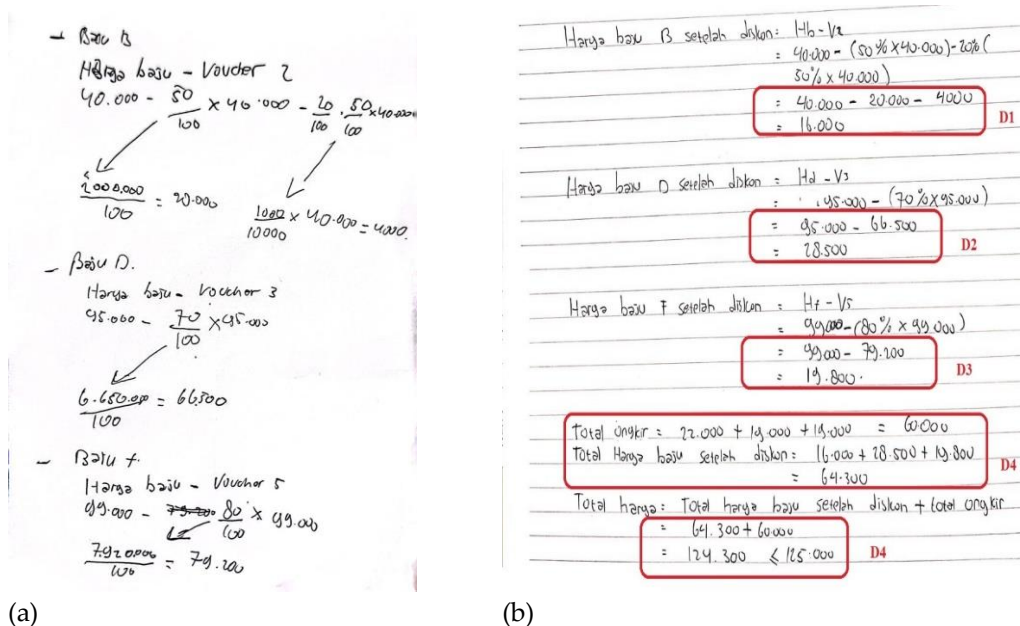 - Baju B
Harga baju - Voucher 2
40.000 - 50/100 × 40.000 - 20/100 . 50/100 × 40.000
2000.000/100 = 20.000
1000/10000 × 40.000 = 4000.
- Baju D.
Harga baju - Vouchor 3
95.000 - 70/100 × 95.000
6.650.00/100 = 66.500
- Baju f.
Harga baju - Vouchor 5
99.000 - 80/100 × 99.000
7.920.000/100 = 79.200
(a)
Harga baju B setelah diskon : Hb - V2
= 40.000 - (50% × 40.000) - 20% (
50% × 40.000)
= 40.000 - 20.000 - 4000
= 16.000
D1
Harga baju D setelah diskon = Hd - V3
= 95.000 - (70% × 95.000)
= 95.000 - 66.500
= 28.500
D2
Harga baju F setelah diskon = Hf - V5
= 99.000 - (80% × 99.000)
= 99.000 - 79.200
= 19.800.
D3
Total ongkir = 22.000 + 19.000 + 19.000 = 60.000
Total Harga baju setelah diskon = 16.000 + 28.500 + 19.800
= 64.300
D4
Total harga = Total harga baju setelah diskon + total ongkir
= 64.300 + 60.000
= 124.300 ≤ 125.000
D4
(b)